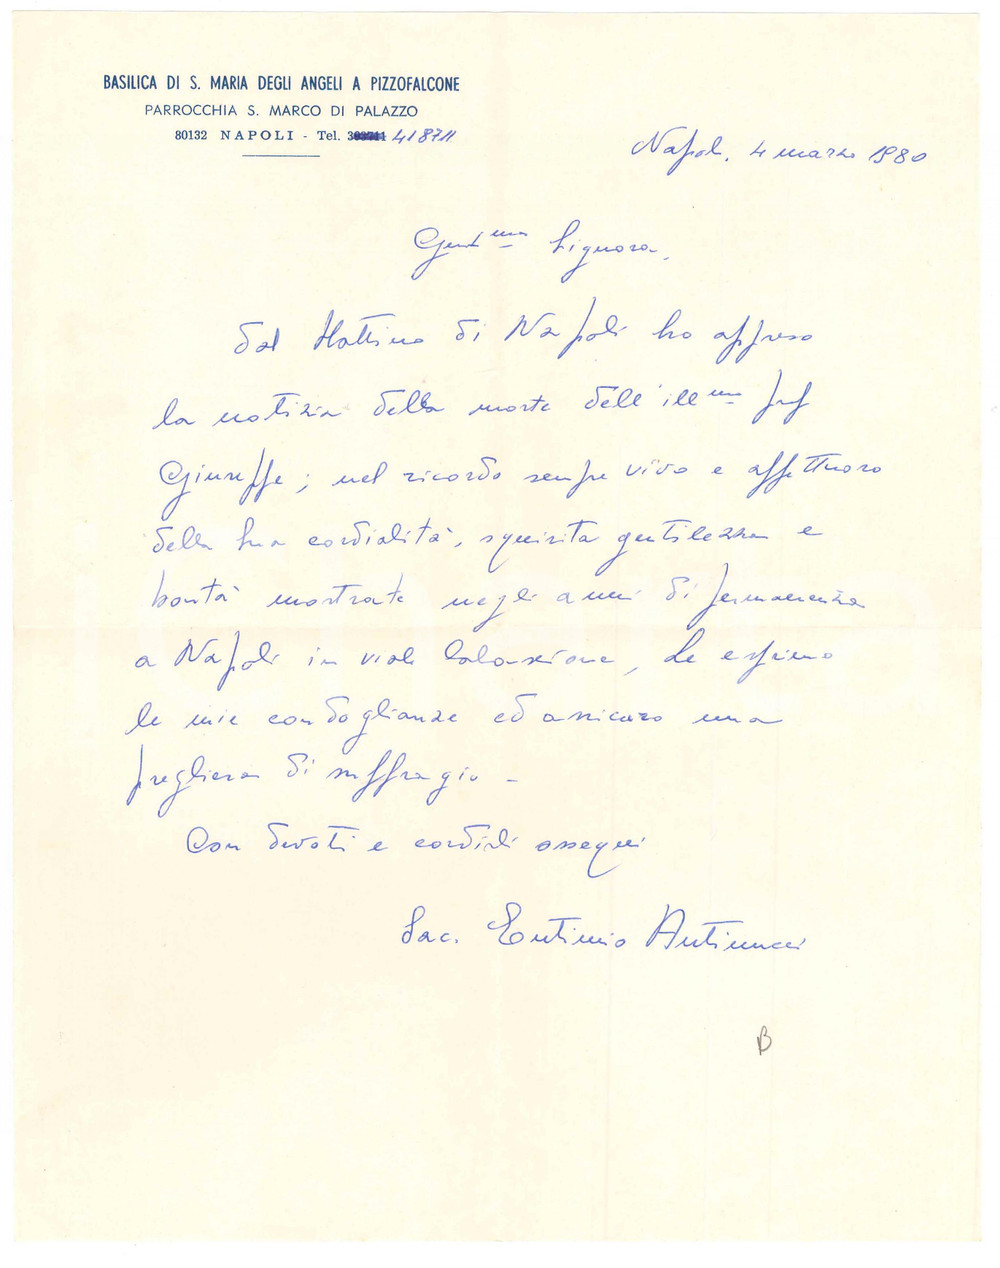 BASILICA DI S. MARIA DEGLI ANGELI A PIZZOFALCONE
PARROCCHIA S. MARCO DI PALAZZO
80132 NAPOLI - Tel. 418711
Napoli, 4 marzo 1980
Gent.ma Signora,
dal Mattino di Napoli ho appreso
la notizia della morte dell'ill.mo prof
Giuseppe; nel ricordo sempre vivo e affettuoso
della Sua cordialità, squisita gentilezza e
bontà mostrate negli anni di permanenza
a Napoli in viale Calascione, Le esprimo
le mie condoglianze ed assicuro una
preghiera di suffragio -
Con devoti e cordiali ossequi
Sac. Eutimio Antinucci
B